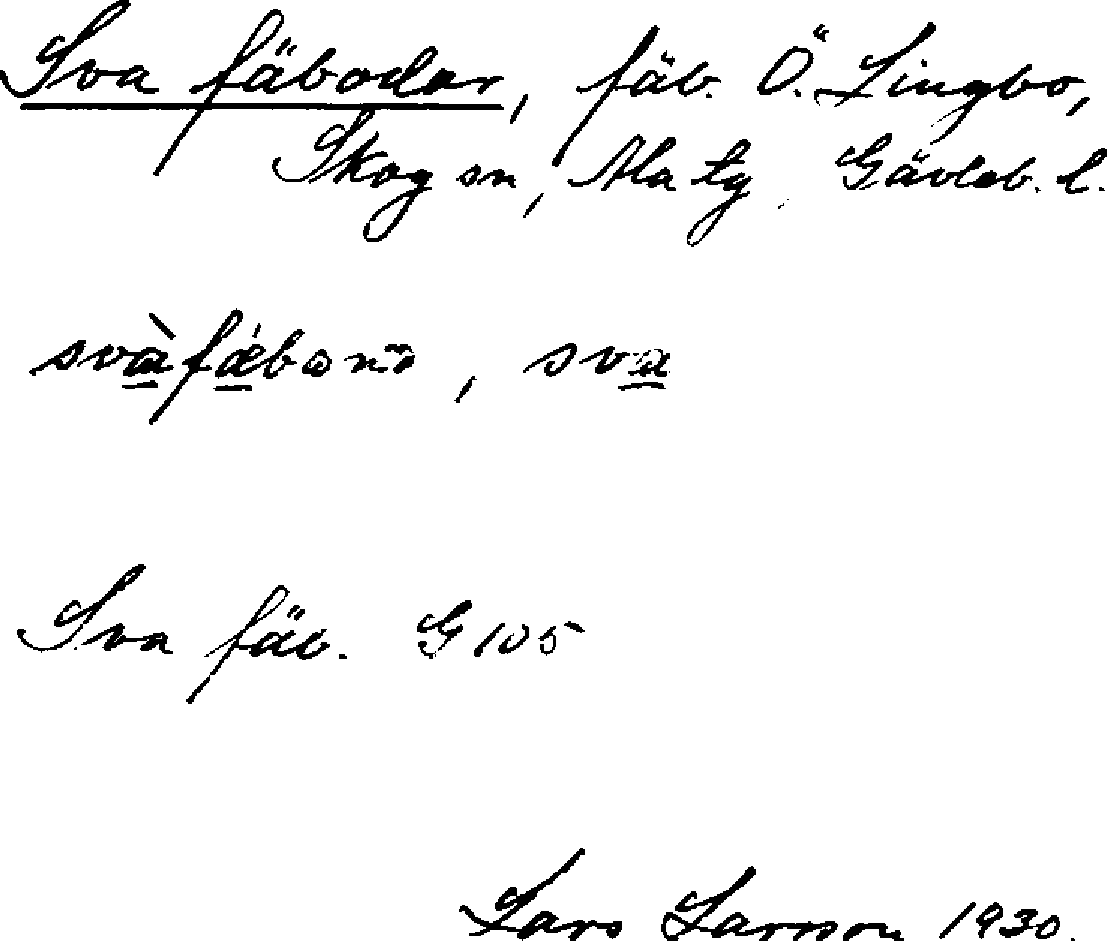 Sva fäbodar, fäb. Ö. Lingbo,
Skog sn, Ala tg, Gävleb. l.
sva
Sva fäb. G 105
Lars Larsson 1930.